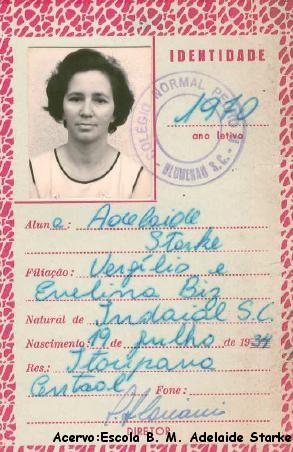 IDENTIDADE
COLÉGIO NORMAL PEDRO
BLUMENAU S.C.
1970
ano letivo
Aluna: Adelaide
Starke
Filiação: Vergílio e
Evelina Biz
Natural de Indaial S.C.
Nascimento: 19 de julho de 1934
Res.: Itoupava
Central Fone:
DIRETOR
Acervo:Escola B. M. Adelaide Starke